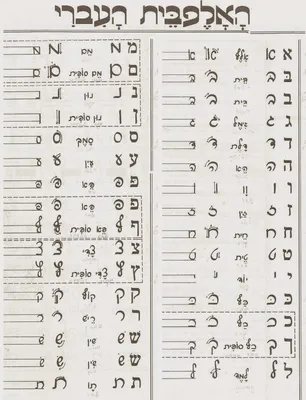 הָאָלֶפְבֵּית הָעִבְרִי
א א אלף א א
ב ב בית ב ב
ב ב בית ב ב
ג ג גמל ג ג
ד ד דלת ד ד
ה ה הא ה ה
ו ו וו ו ו
ז ז זין ז ז
ח ח חית ח ח
ט ט טית ט ט
י י יוד י י
כ כ כף כ כ
כ כ כף כ כ
ך ך כף סופית ך ך
ל ל למד ל ל
מ מ מם מ מ
ם ם מם סופית ם ם
נ נ נון נ נ
ן ן נון סופית ן ן
ס ס סמך ס ס
ע ע עין ע ע
פ פ פא פ פ
פ פ פא פ פ
ף ף פא סופית ף ף
צ צ צדי צ צ
ץ ץ צדי סופית ץ ץ
ק ק קוף ק ק
ר ר ריש ר ר
ש ש שין ש ש
ש ש שין ש ש
ת ת תו ת ת